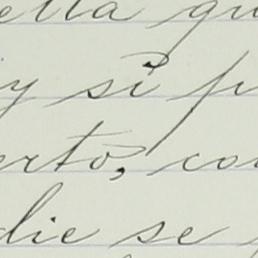 ella qu
y si p
erto, co
die se